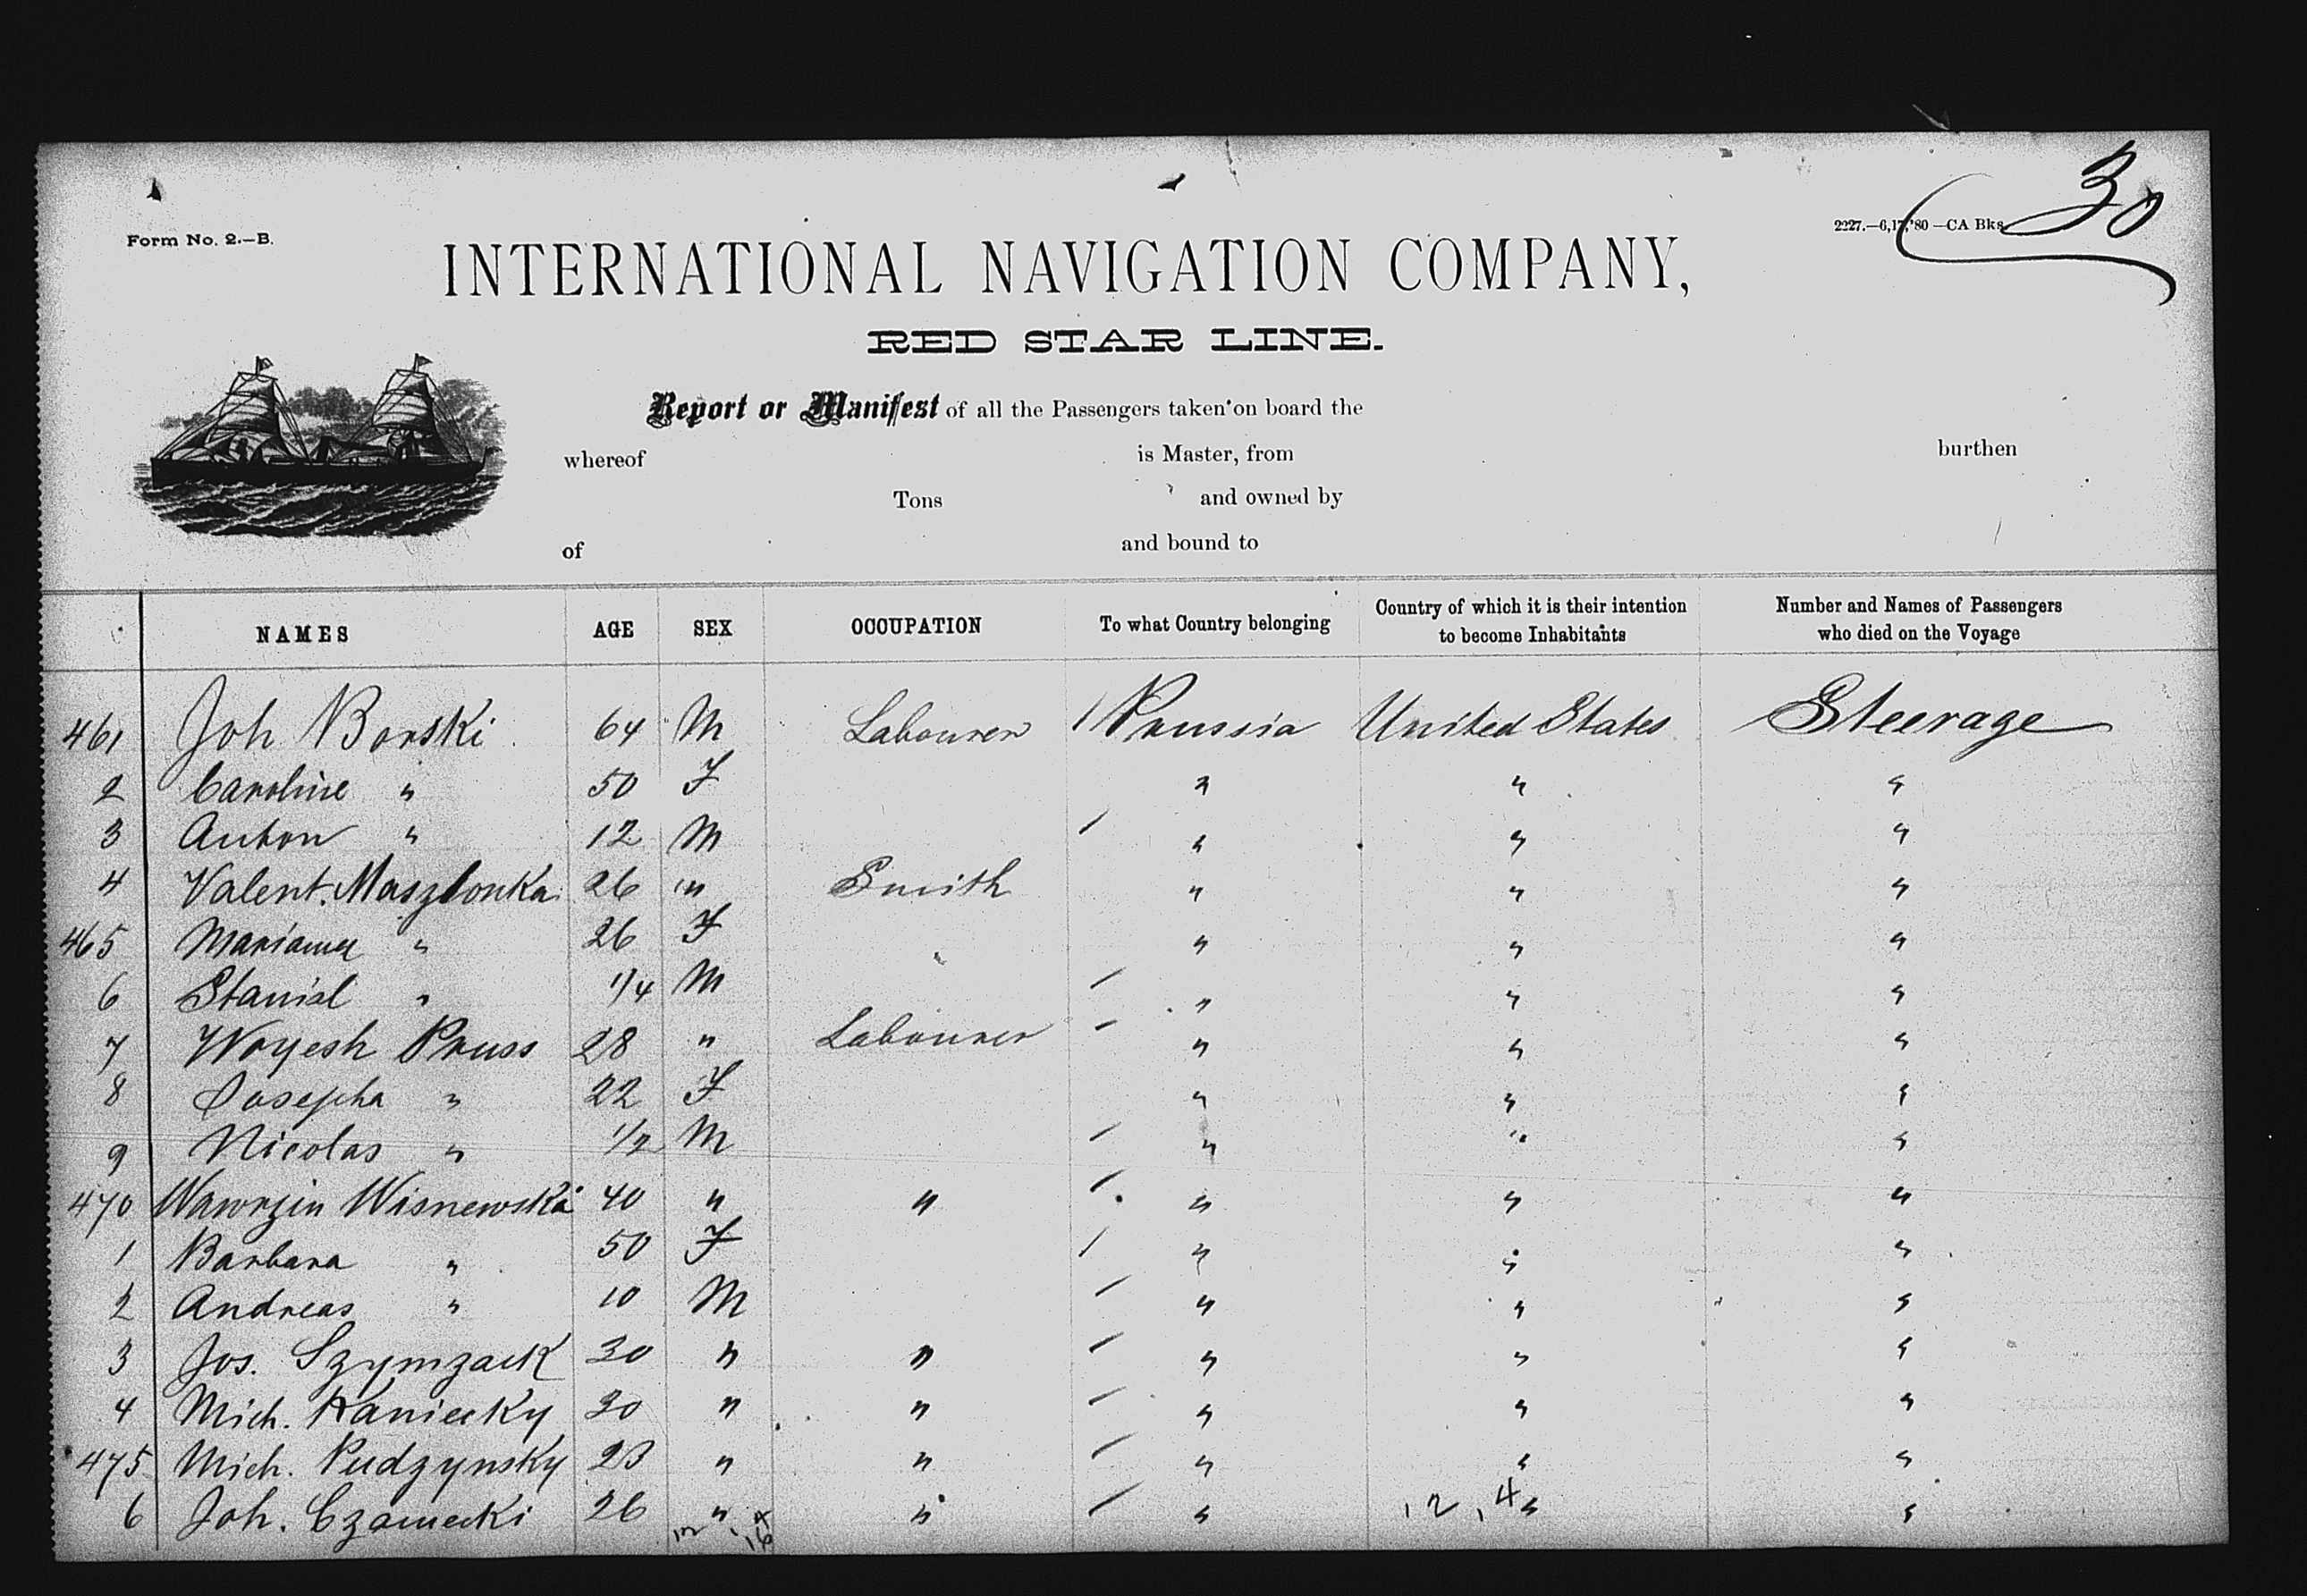 30
Form No. 2.—B.
2227.—6,17,'80—CA Bks.
INTERNATIONAL NAVIGATION COMPANY,
RED STAR LINE.
Report or Manifest of all the Passengers taken on board the
whereof is Master, from burthen
Tons and owned by
of and bound to
NAMES AGE SEX OCCUPATION To what Country belonging Country of which it is their intention to become Inhabitants Number and Names of Passengers who died on the Voyage
461 Joh Borski 64 M Labourer / Prussia United States Steerage
2 Caroline " 50 F " " "
3 Anton " 12 M / " " "
4 Valent. Maszlonka 26 " Smith " " "
465 Marianna " 26 F " " "
6 Stanisl " 1/4 M / " " "
7 Woyesh Pruss 28 " Labourer / " " "
8 Josepha " 22 F " " "
9 Nicolas " 1/2 M / " " "
470 Wawrzin Wisnewski 40 " " / " " "
1 Barbara " 50 F / " " "
2 Andreas " 10 M / " " "
3 Jos. Szymzack 30 " " / " " "
4 Mich. Kaniecky 30 " " / " " "
475 Mich. Pudzynsky 23 " " / " " "
6 Joh. Czarnecki 26 " " / " " "
12 , 4